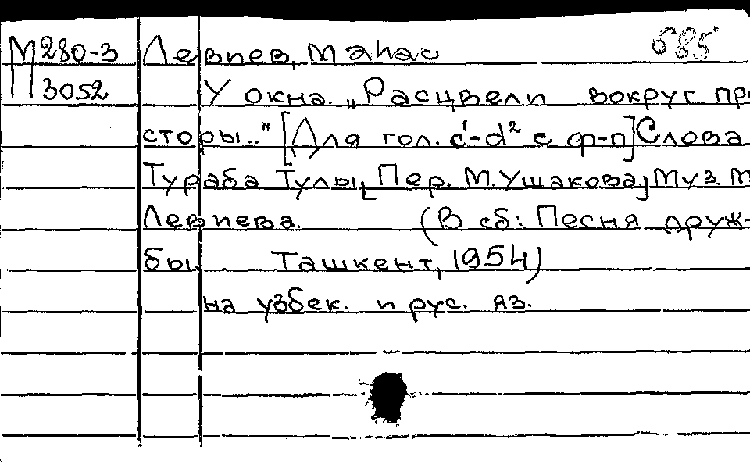 М280-3 Левиев, Манас 685
П3052 У окна. „Расцвели вокруг про
сторы.." [Для гол. c¹-d² с ф-п] Слова
Тураба Тулы, [Пер. М. Ушакова] Муз. М
Левиева. (В сб: Песня друж-
бы Ташкент, 1954)
на узбек. и рус. яз.